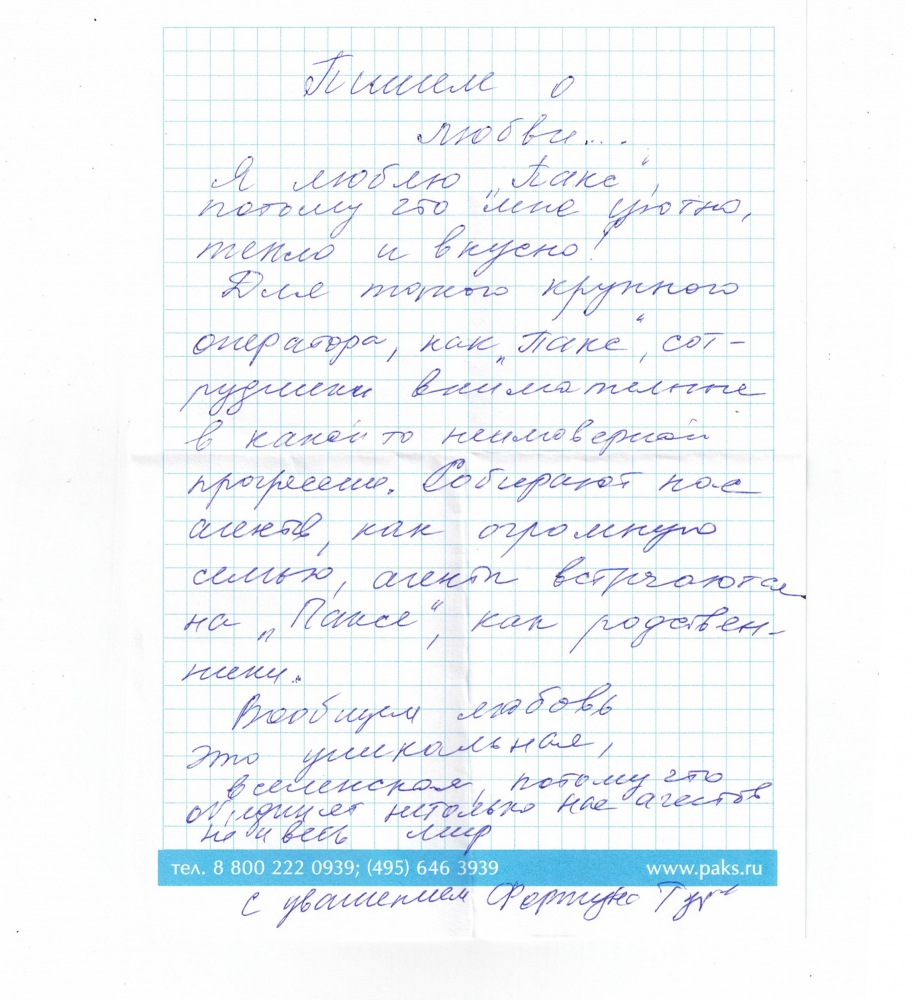 Пишем о
любви....
Я люблю „Пакс",
потому что мне уютно,
тепло и вкусно!
Для такого крупного
оператора, как „Пакс", сот-
рудники внимательные
в какой то неимоверной
прогрессии. Собирают нас
агентов, как огромную
семью, агенты встречаются
на „Паксе", как родствен-
ники.
Вообщем любовь
это уникальная,
вселенская, потому что
объединяет нетолько нас агентов
но и весь мир
тел. 8 800 222 0939; (495) 646 3939 www.paks.ru
с уважением Фортуна Тур